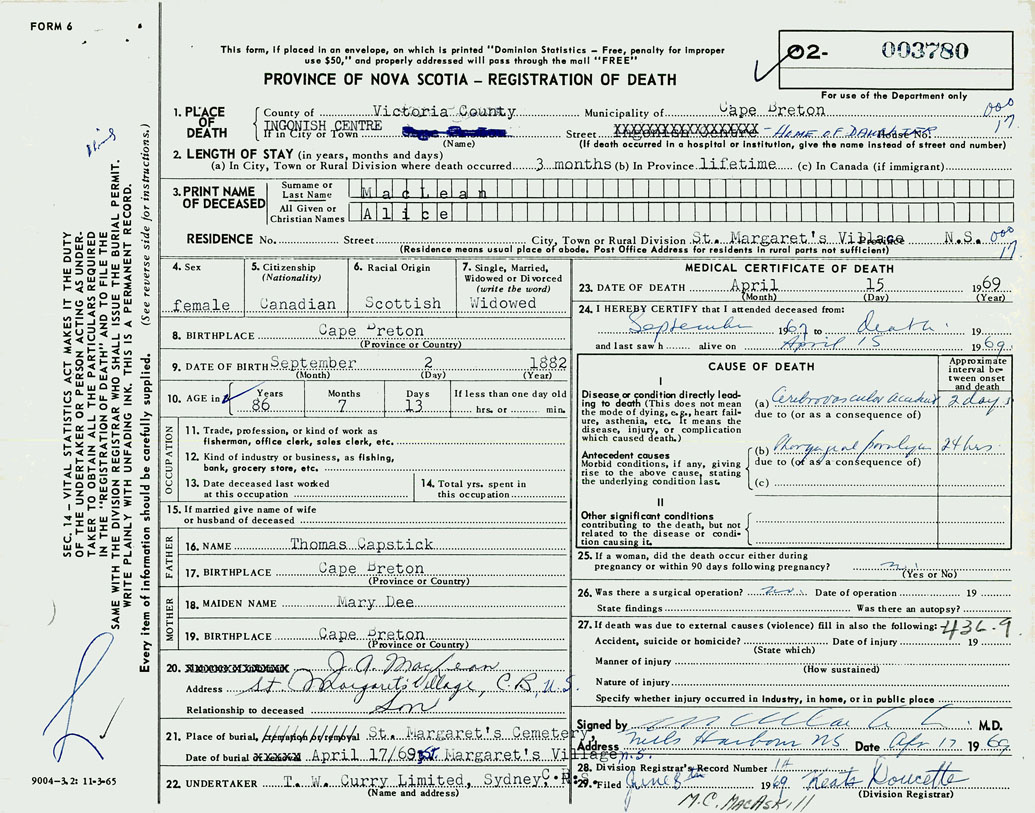 FORM 6
This form, if placed in an envelope, on which is printed "Dominion Statistics – Free, penalty for improper
use $50," and properly addressed will pass through the mail "FREE"
PROVINCE OF NOVA SCOTIA – REGISTRATION OF DEATH
02- 003780
For use of the Department only
1. PLACE OF DEATH
County of Victoria County Municipality of Cape Breton
INGONISH CENTRE
If in City or Town Street - HOME OF DAUGHTER House No.
(Name) (If death occurred in a hospital or institution, give the name instead of street and number)
000
17
2. LENGTH OF STAY (in years, months and days)
(a) In City, Town or Rural Division where death occurred 3 months (b) In Province lifetime (c) In Canada (if immigrant)
3. PRINT NAME OF DECEASED
Surname or Last Name MacLean
All Given or Christian Names Alice
RESIDENCE No. Street City, Town or Rural Division St. Margaret's Village Province N.S. 000
17
(Residence means usual place of abode. Post Office Address for residents in rural parts not sufficient)
4. Sex female
5. Citizenship (Nationality) Canadian
6. Racial Origin Scottish
7. Single, Married, Widowed or Divorced (write the word) Widowed
8. BIRTHPLACE Cape Breton
(Province or Country)
9. DATE OF BIRTH September 2 1882
(Month) (Day) (Year)
10. AGE in Years 86 Months 7 Days 13 If less than one day old hrs. or min.
OCCUPATION
11. Trade, profession, or kind of work as
fisherman, office clerk, sales clerk, etc.
12. Kind of industry or business, as fishing,
bank, grocery store, etc.
13. Date deceased last worked
at this occupation
14. Total yrs. spent in
this occupation
15. If married give name of wife
or husband of deceased
FATHER
16. NAME Thomas Capstick
17. BIRTHPLACE Cape Breton
(Province or Country)
MOTHER
18. MAIDEN NAME Mary Dee
19. BIRTHPLACE Cape Breton
(Province or Country)
20. J. A. MacLean
Address St Margarets Village, C.B, N.S.
Relationship to deceased Son
21. Place of burial, cremation or removal St. Margaret's Cemetery,
Date of burial April 17/69 St. Margaret's Village n.s.
22. UNDERTAKER T. W. Curry Limited, Sydney, C.B. N.S.
(Name and address)
MEDICAL CERTIFICATE OF DEATH
23. DATE OF DEATH April 15 1969
(Month) (Day) (Year)
24. I HEREBY CERTIFY that I attended deceased from:
September 1967 to death 19
and last saw h alive on April 15 1969
CAUSE OF DEATH
Approximate interval between onset and death
I
Disease or condition directly leading to death (This does not mean the mode of dying, e.g., heart failure, asthenia, etc. It means the disease, injury, or complication which caused death.)
(a) Cerebrovascular accident 2 days
due to (or as a consequence of)
Antecedent causes
Morbid conditions, if any, giving rise to the above cause, stating the underlying condition last.
(b) Pharyngeal paralysis 24 hrs
due to (or as a consequence of)
(c)
II
Other significant conditions
contributing to the death, but not
related to the disease or condition causing it.
25. If a woman, did the death occur either during
pregnancy or within 90 days following pregnancy? no
(Yes or No)
26. Was there a surgical operation? no Date of operation 19
State findings Was there an autopsy?
27. If death was due to external causes (violence) fill in also the following: 436.9
Accident, suicide or homicide? Date of injury 19
(State which)
Manner of injury
(How sustained)
Nature of injury
Specify whether injury occurred in industry, in home, or in public place
Signed by M.D.
Address Neils Harbour NS Date Apr 17 1969
28. Division Registrar's Record Number 14
29. Filed June 8th 1969 Keats Doucette
(Division Registrar)
M.C. MACASKILL
SEC. 14 – VITAL STATISTICS ACT MAKES IT THE DUTY
OF THE UNDERTAKER OR PERSON ACTING AS UNDER-
TAKER TO OBTAIN ALL THE PARTICULARS REQUIRED
IN THE "REGISTRATION OF DEATH" AND TO FILE THE
SAME WITH THE DIVISION REGISTRAR WHO SHALL ISSUE THE BURIAL PERMIT.
WRITE PLAINLY WITH UNFADING INK. THIS IS A PERMANENT RECORD.
Every item of information should be carefully supplied. (See reverse side for instructions.)
9004-3.2: 11-3-65